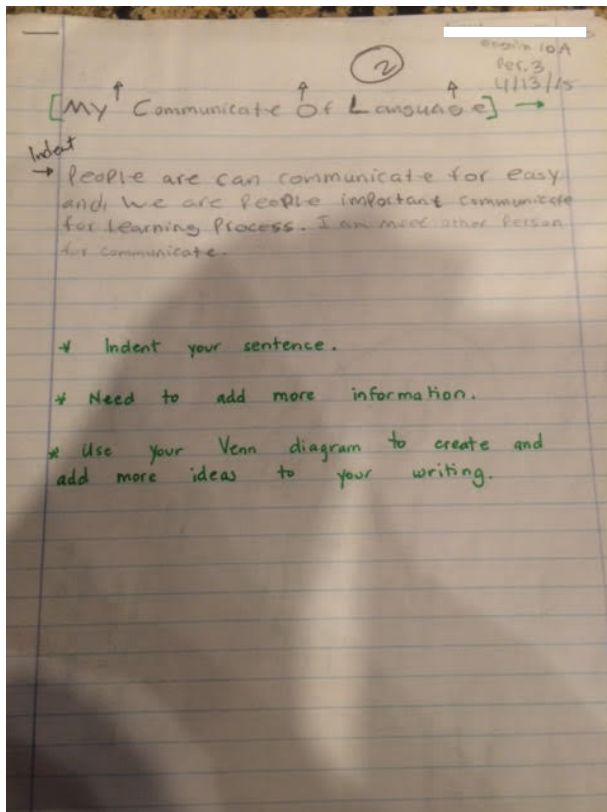 10A
Per. 3
4/13/15
2
[My Communicate Of Language] →
Indent
→ People are can communicate for easy
and, we are People important communicate
for Learning Process. I am need other Person
for communicate.
* Indent your sentence.
* Need to add more information.
* Use your Venn diagram to create and
add more ideas to your writing.